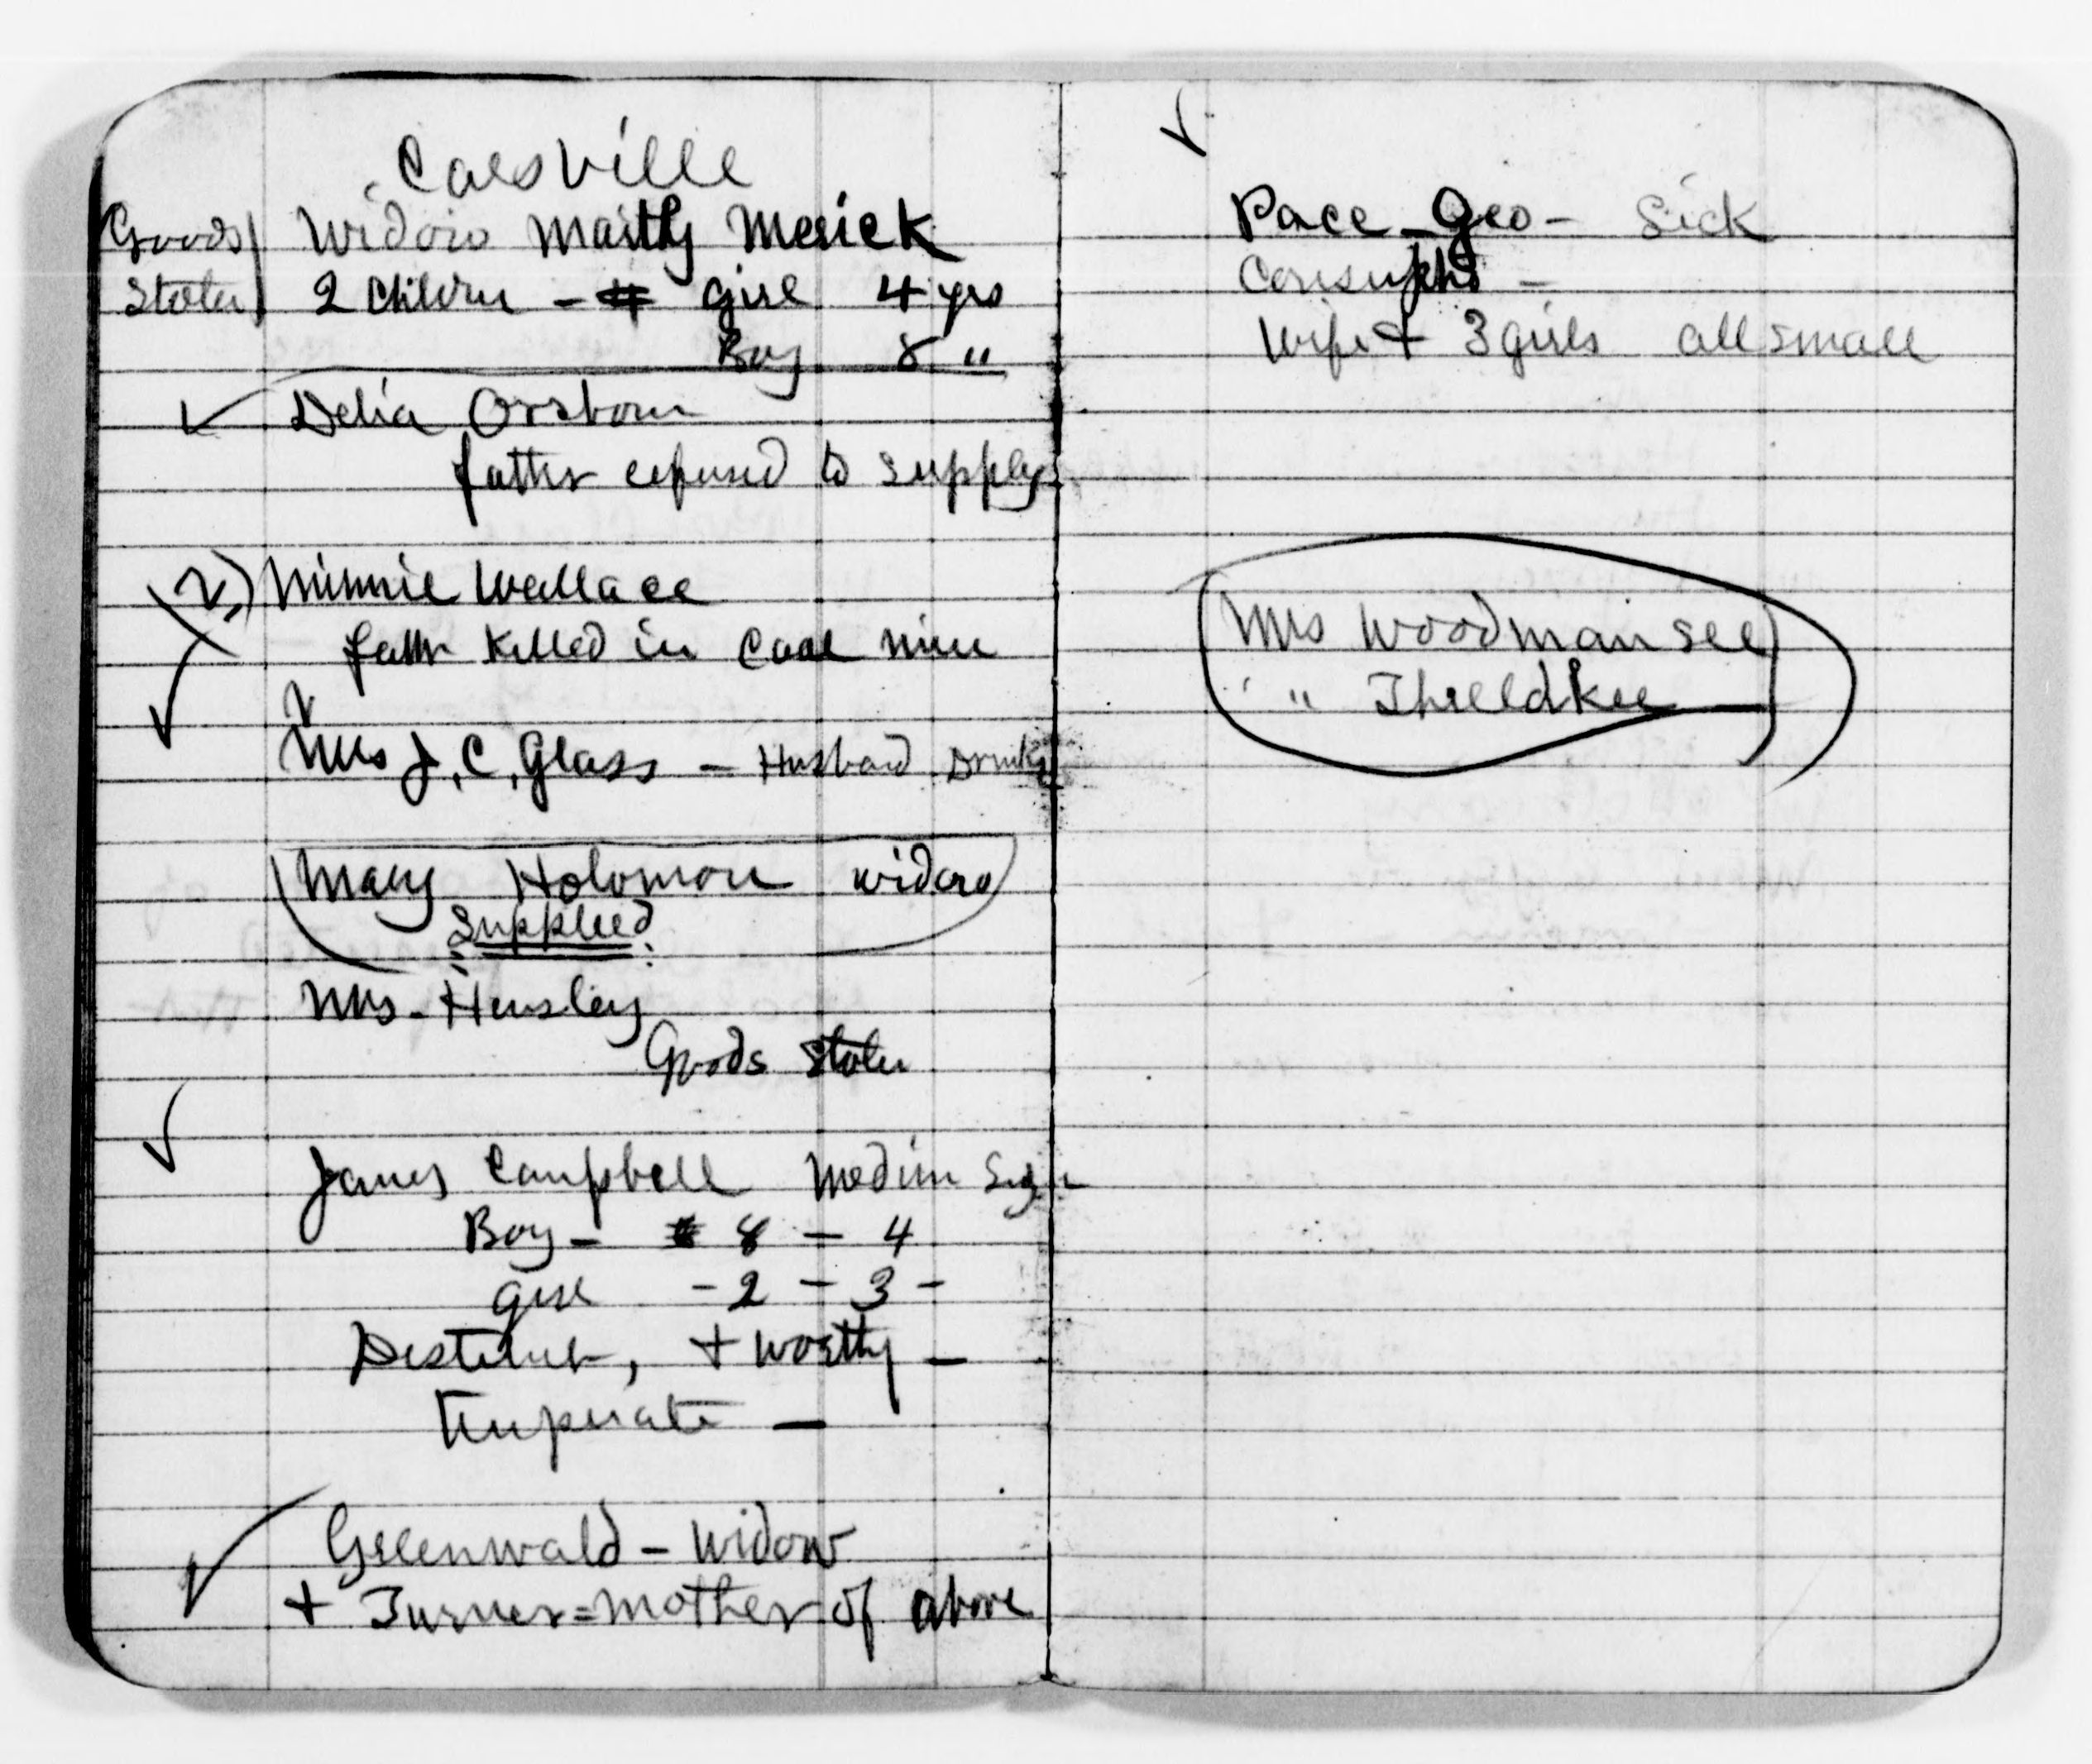 Caesville
Goods Widow Martly Mesick
Stolen 2 Children - girl 4 yrs
Boy 8 "
Delia Orsborn
father refused to supply
2) Minnie Wallace
fathr killed in Coal mine
Mrs J. C. Glass - Husband Drinks
Mary Holomon widow
Supplied
Mrs. Hensley
Goods Stolen
James Campbell Medium Size
Boy - 8 - 4
girl - 2 - 3 -
Destitute, + worthy -
Temperate -
Greenwald - Widow
+ Turner = Mother of above
Pace Geo - Sick
Wife + 3 girls all small
Mrs Woodmansee
" Threldkee